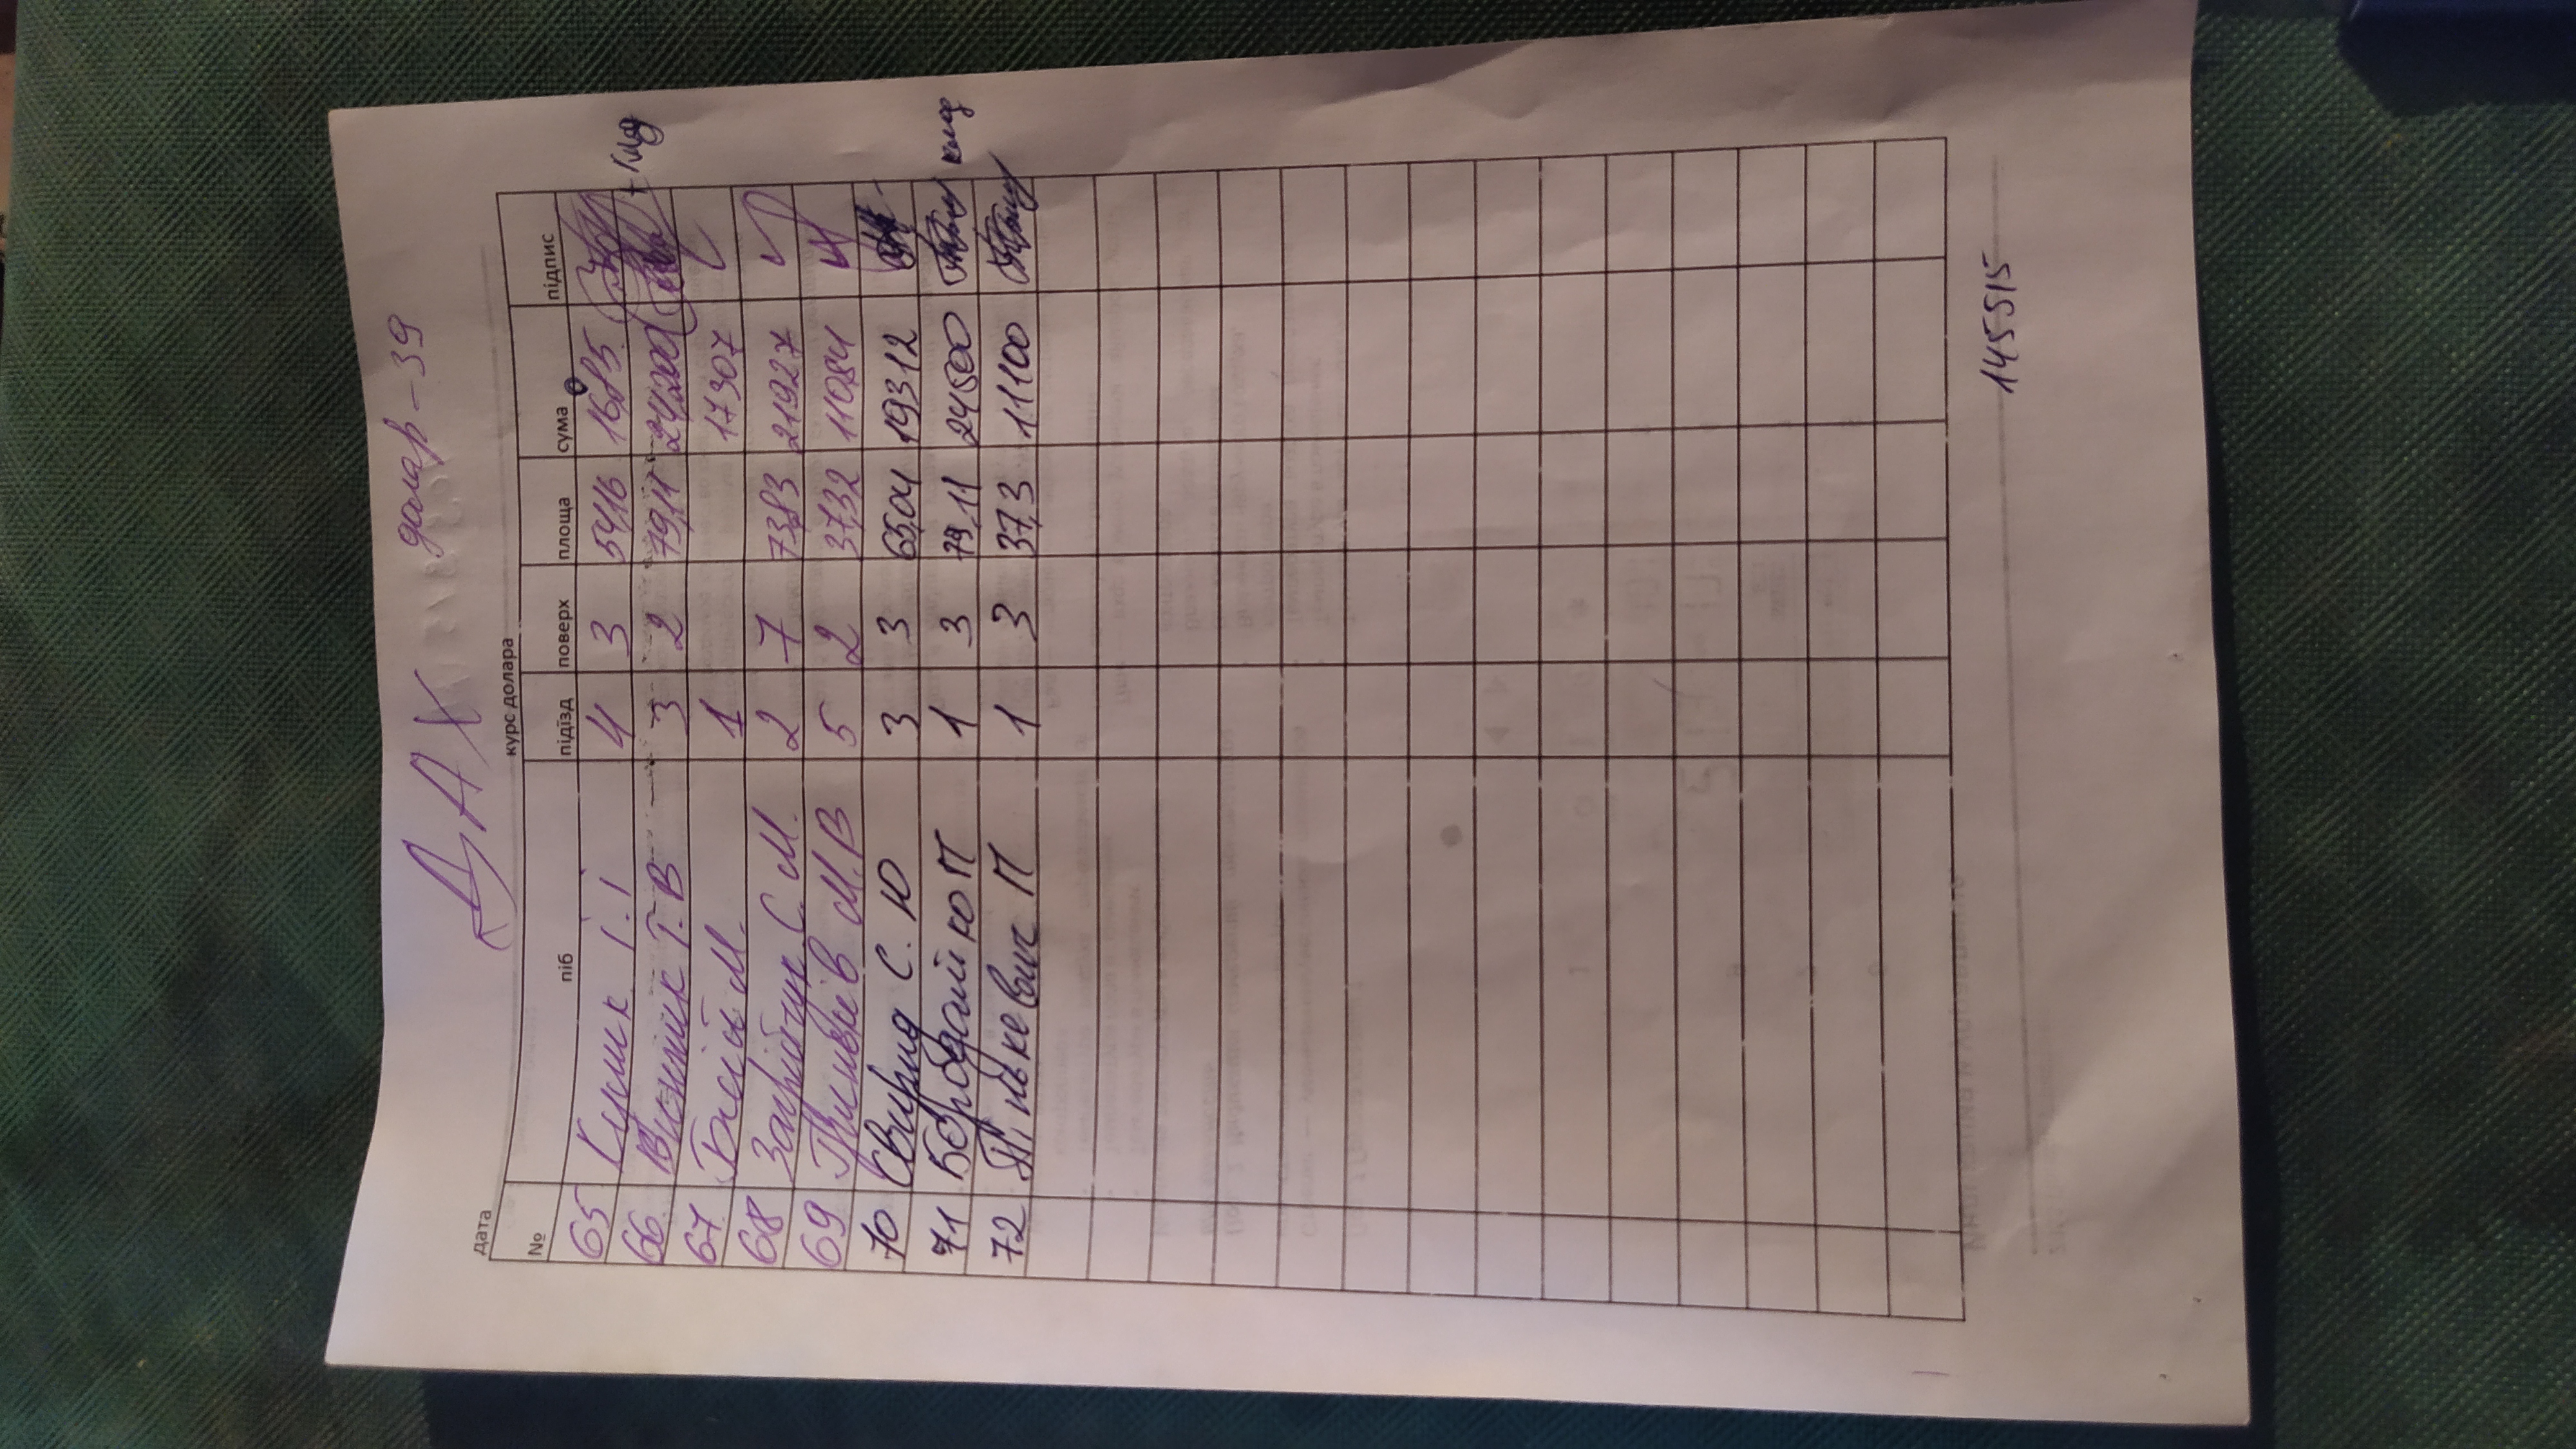 ДАХ долар - 39
дата
курс долара
№ піб підїзд поверх площа сума підпис
65 Кулик І.І 4 3 54,16 16085
66 Винник Г.В 3 2 79,11 24200
67 М. 1 17307
68 Загрійчук С. М. 2 7 73,83 21927
69 Гриньків М.В 5 2 37,32 11084
70 Свирид С. Ю 3 3 65,04 19312
71 Бородайко П 1 3 79,11 24500
72 Пінькевич П 1 3 37,3 11100
145515